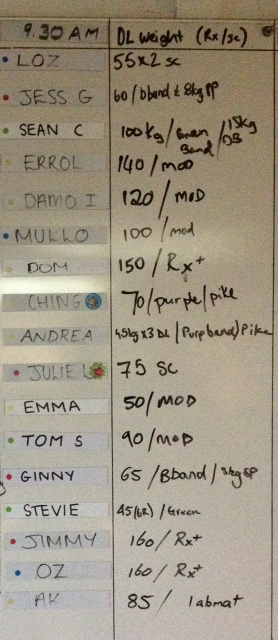 9.30 AM DL weight (Rx/sc)
LOZ 55x2 sc
JESS G 60/bband & 8kg PP
SEAN C 100kg/Green Band/15kg DB
ERROL 140/mod
DAMO I 120/MOD
MULLO 100/mod
DOM 150/Rx+
CHING 70/purple/pike
ANDREA 45kgx3 DL/Purpband/Pike
JULIE L 75 SC
EMMA 50/MOD
TOM S 90/MOD
GINNY 65/Bband/8kg PP
STEVIE 45(GR)/Green
JIMMY 160/Rx+
OZ 160/Rx+
AK 85/1abmat